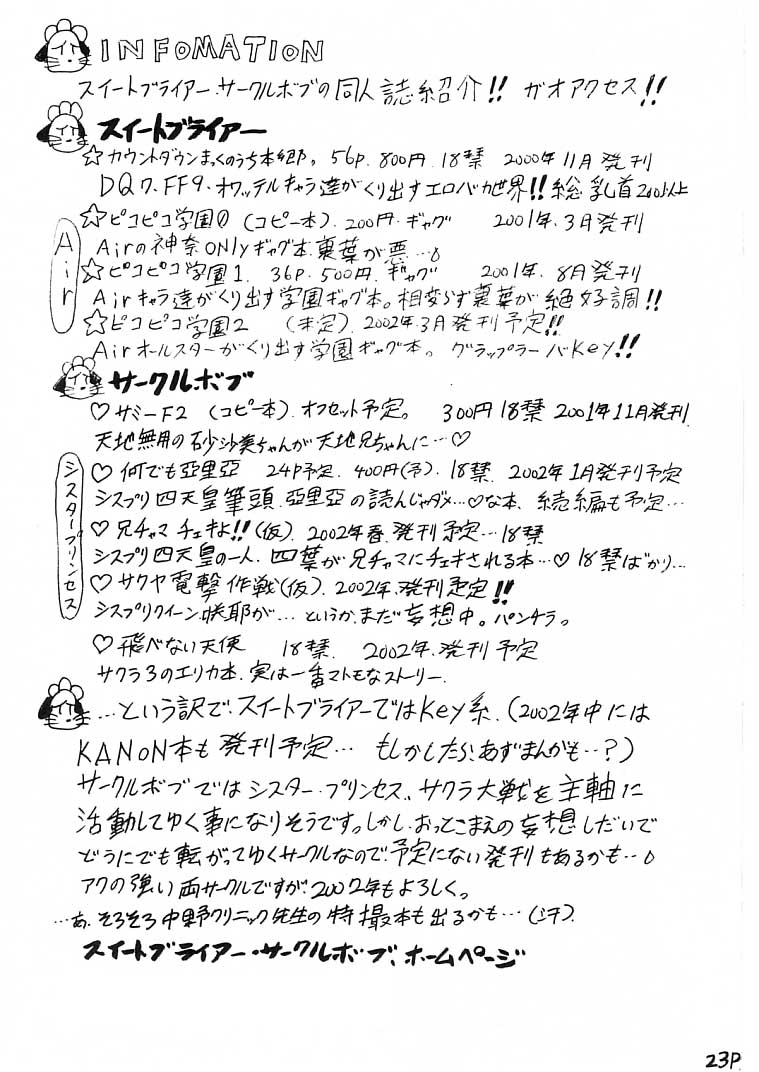 INFOMATION
スイートブライアー・サークルボブの同人誌紹介!! ガオアクセス!!
スイートブライアー
☆カウントダウンまっくのうち本郷。56P. 800円. 18禁 2000年11月発刊
DQ7、FF9、オワッテルキャラ達がくり出すエロバカ世界!! 総乳首200以上
Air
☆ピコピコ学園0 (コピー本). 200円. ギャグ 2001年. 3月発刊
Airの神奈ONlyギャグ本. 裏葉が悪…。
☆ピコピコ学園1. 36P. 500円. ギャグ 2001年. 8月発刊
Airキャラ達がくり出す学園ギャグ本。相変らず裏葉が絶好調!!
☆ピコピコ学園2 (未定). 2002年. 3月発刊予定!!
Airオールスターがくり出す学園ギャグ本。グラップラーバKey!!
サークルボブ
♡サミーF2 (コピー本). オフセット予定。 300円 18禁 2001年11月発刊.
天地無用の砂沙美ちゃんが天地兄ちゃんに…♡
シスタープリンセス
♡何でも亞里亞 24P予定. 400円(予). 18禁. 2002年1月発刊予定
シスプリ四天皇筆頭. 亞里亞の読んじゃダメ…♡な本、続編も予定…
♡兄チャマチェキよ!!(仮). 2002年春. 発刊予定…18禁
シスプリ四天皇の一人. 四葉が兄チャマにチェキされる本…♡ 18禁ばかり…
♡サクヤ電撃作戦(仮). 2002年. 発刊予定!!
シスプリクイーン. 咲耶が…というか、まだ妄想中。パンチラ。
♡飛べない天使 18禁 2002年. 発刊予定
サクラ3のエリカ本. 実は一番マトモなストーリー.
…という訳で、スイートブライアーではKey系. (2002年中には
KANON本も発刊予定… もしかしたら、あずまんがも…?)
サークルボブではシスター・プリンセス、サクラ大戦を主軸に
活動してゆく事になりそうです。しかし、おっとこまえの妄想しだいで
どうにでも転がってゆくサークルなので、予定にない発刊もあるかも…。
アクの強い両サークルですが、2002年もよろしく。
…あ、そろそろ中野クリニック先生の特撮本も出るかも…(汗).
スイートブライアー・サークルボブ、ホームページ
23P